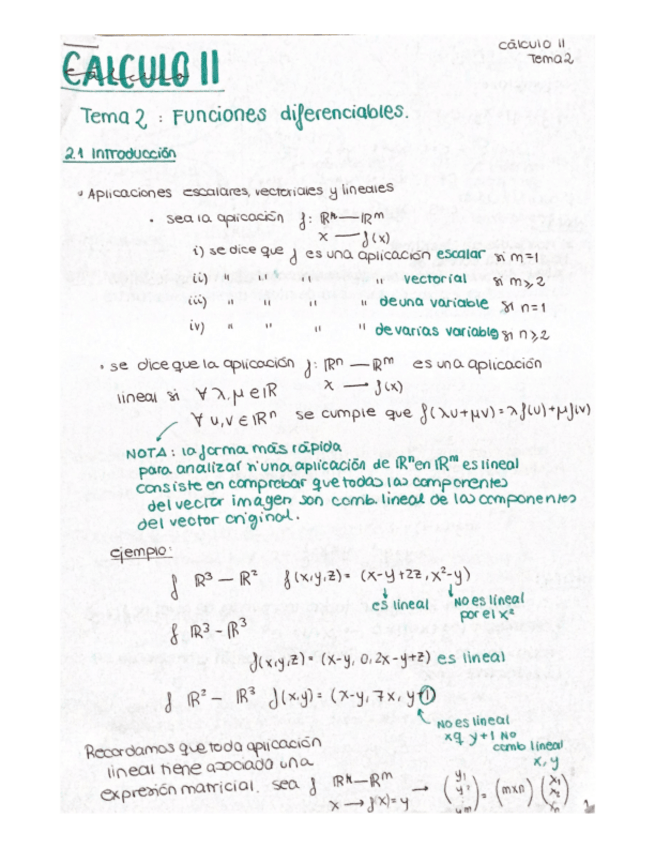 cálculo II
Tema 2
CALCULO II
Tema 2 : Funciones diferenciables.
2.1 Introducción
Aplicaciones escalares, vectoriales y lineales
· sea la aplicación f: ℝⁿ — ℝᵐ
x — f(x)
i) se dice que f es una aplicación escalar si m=1
ii) " " " " vectorial si m≥2
iii) " " " de una variable si n=1
iv) " " " " de varias variables si n≥2
· se dice que la aplicación f: ℝⁿ — ℝᵐ es una aplicación
x → f(x)
lineal si ∀ λ, μ ∈ ℝ
∀ u, v ∈ ℝⁿ se cumple que f(λu+μv)=λf(u)+μf(v)
NOTA: la forma más rápida
para analizar si una aplicación de ℝⁿ en ℝᵐ es lineal
consiste en comprobar que todas las componentes
del vector imagen son comb. lineal de las componentes
del vector original.
ejemplo:
f ℝ³ — ℝ² f(x,y,z)= (x-y+2z, x²-y)
es lineal No es lineal
por el x²
f ℝ³ - ℝ³
f(x,y,z)= (x-y, 0, 2x-y+z) es lineal
f ℝ² — ℝ³ f(x,y)= (x-y, 7x, y+1)
No es lineal
xq y+1 No
comb lineal
x, y
Recordamos que toda aplicación
lineal tiene asociada una
expresión matricial. sea f ℝⁿ — ℝᵐ → (y₁ y₂ ⋮ yₘ) = (mxn) (x₁ x₂ ⋮ xₙ)
x → f(x)=y